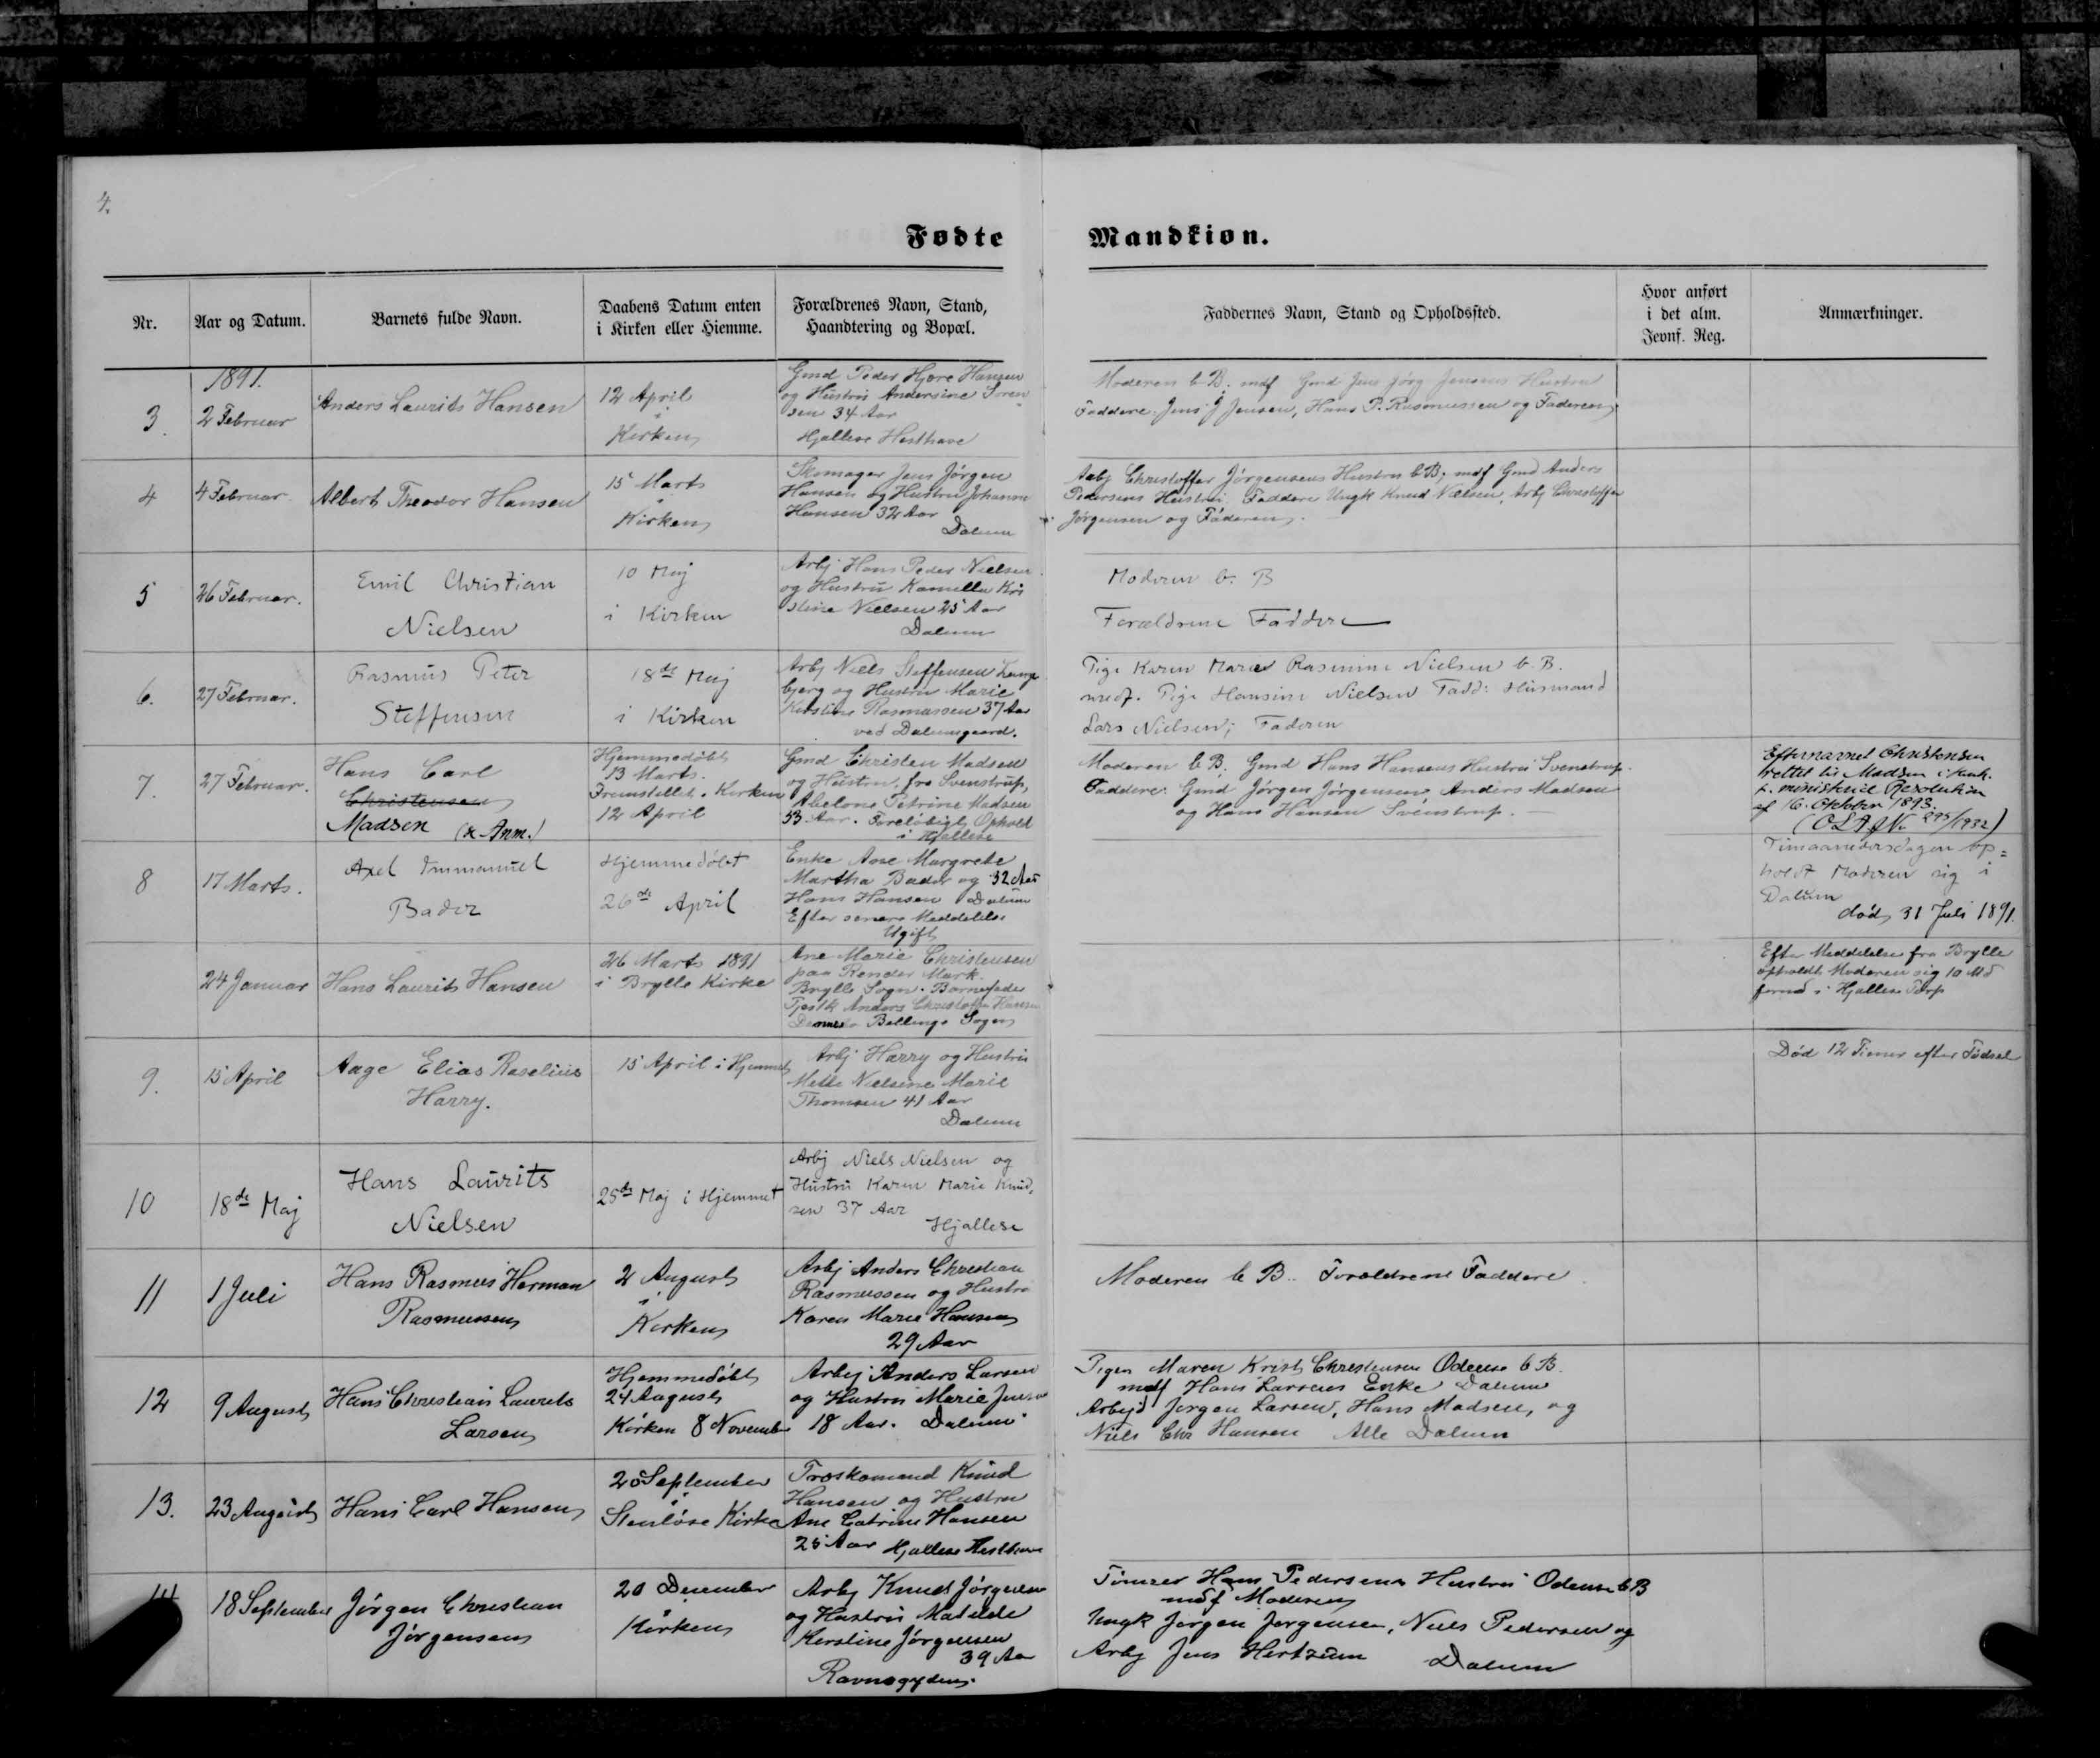 4.
Fødte Mandkiøn.
Nr.
Aar og Datum.
Barnets fulde Navn.
Daabens Datum enten
i Kirken eller Hiemme.
Forældrenes Navn, Stand,
Haandtering og Bopæl.
Faddernes Navn, Stand og Opholdssted.
Hvor anført
i det alm.
Jevnf. Reg.
Anmærkninger.
1891.
3.
2 Februar
Anders Laurits Hansen
12 April
i
Kirken
Gmd Peder Hjore Hansen
og Hustru Andersine Soren
sen 34 Aar
Hjallese Hesthave
Moderen b. B; mdf Gmd Jens Jørg Jensens Hustru
Faddere. Jens J Jensen, Hans P. Rasmussen og Faderen
4
4 Februar
Albert Theodor Hansen
15 Marts
i
Kirken
Skomager Jens Jørgen
Hansen og Hustru Johanne
Hansen 32 Aar
Dalum
Arbj Christoffer Jørgensens Hustru b B; mdf Gmd Anders
Pedersens Hustru, Faddere Ungk Knud Nielsen, Arbj Christoffer
Jørgensen og Faderen.
5
26 Februar.
Emil Christian
Nielsen
10 Maj
i Kirken
Arbj Hans Peder Nielsen
og Hustru Kamilla Kri
stine Nielsen 25 Aar
Dalum
Moderen b. B
Forældrene Faddere
6.
27 Februar.
Rasmus Peter
Steffensen
18de Maj
i Kirken
Arbj Niels Steffensen
bjerg og Hustru Marie
Kirstine Rasmussen 37 Aar
ved Dalumgaard.
Pige Karen Marie Rasmine Nielsen b. B.
medf. Pige Hansine Nielsen Fadd: Husmand
Lars Nielsen; Faderen
7.
27 Februar.
Hans Carl
Christensen
Madsen (x Anm.)
Hjemmedøbt
13 Marts.
Fremstillet i Kirken
12 April
Gmd Christen Madsen
og Hustru, fra Svenstrup,
Abelone Petrine Madsen
33 Aar. Foreløbigt Ophold
i Hjallese
Moderen b B; Gmd Hans Hansens Hustru Svenstrup.
Faddere: Gmd Jørgen Jørgensen, Anders Madsen
og Hans Hansen Svenstrup.
Efternavnet Christensen
rettet til Madsen i Kirk.
f. ministeriel Resolution
af 16. Oktober 1893.
8
17 Marts.
Axel Immanuel
Bader
Hjemmedøbt
26de April
Enke Ane Margrete
Martha Bader og 32 Aar
Hans Hansen Dalum
Efter senere Meddelelse
Ugift
Timaanedersdagen op=
holdt Moderen sig i
Dalum
død 31 Juli 1891.
24 Januar
Hans Laurits Hansen
26 Marts 1891
i Brylle Kirke
Ane Marie Christensen
paa Render Mark.
Brylle Sogn. Barnefader
Tjestk Anders Christoffer Hansen
Bellinge Sogn
Efter Meddelelse fra Brylle
opholdt Moderen sig 10 Md
forud i Hjallese Torp
9.
15 April
Aage Elias Roselius
Harry.
15 April i Hjemmet
Arbj Harry og Hustru
Mette Nielsine Marie
Thomsen 41 Aar
Dalum
Død 12 Timer efter Fødsel
10
18de Maj
Hans Laurits
Nielsen
25de Maj i Hjemmet
Arbj Niels Nielsen og
Hustru Karen Marie Knud,
sen 37 Aar
Hjallese
11
1 Juli
Hans Rasmus Herman
Rasmussen
2 August
i
Kirken
Arbj Anders Christian
Rasmussen og Hustru
Karen Marie Hansen
29 Aar
Moderen b B. Forældrene Faddere
12
9 August
Hans Christian Laurits
Larsen
Hjemmedøbt
24 August
Kirken 8 November
Arbej Anders Larsen
og Hustru Marie Jensen
18 Aar. Dalum
Pigen Maren Kristi Christensen Odense b B.
mdf Hans Larsens Enke Dalum
Arbejd Jørgen Larsen, Hans Madsen, og
Niels Chr Hansen Alle Dalum
13.
23 August
Hans Carl Hansen
20 September
i
Stenløse Kirke
Træskomand Knud
Hansen og Hustru
Ane Catrine Hansen
25 Aar Hjallese Hesthave
14
18 September
Jørgen Christian
Jørgensen
20 December
i
Kirken
Arbj Knud Jørgensen
og Hustru Matilde
Kirstine Jørgensen
39 Aar
Ravnsgyden.
Tømrer Hans Pedersens Hustru Odense b B
mdf Moderen
Ungk Jørgen Jørgensen, Niels Pedersen og
Arbj Jens Hertzum Dalum